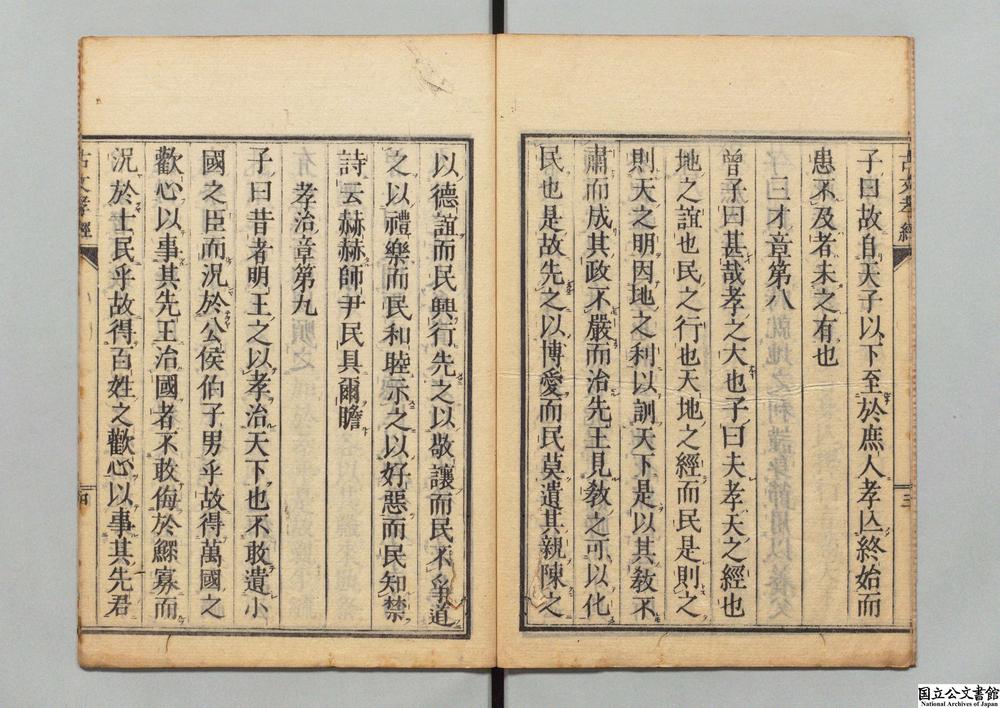 子曰故自天子以下至於庶人孝亡終始而
患不及者未之有也
三才章第八
曾子曰甚哉孝之大也子曰夫孝天之經也
地之誼也民之行也天地之經而民是則之
則天之明因地之利以訓天下是以其教不
肅而成其政不嚴而治先王見教之可以化
民也是故先之以博愛而民莫遺其親陳之
以德誼而民興行先之以敬讓而民不爭道
之以禮樂而民和睦示之以好惡而民知禁
詩云赫赫師尹民具爾瞻
孝治章第九
子曰昔者明王之以孝治天下也不敢遺小
國之臣而況於公侯伯子男乎故得萬國之
歡心以事其先王治國者不敢侮於鰥寡而
況於士民乎故得百姓之歡心以事其先君
古文孝經
三
古文孝經
四
国立公文書館
National Archives of Japan